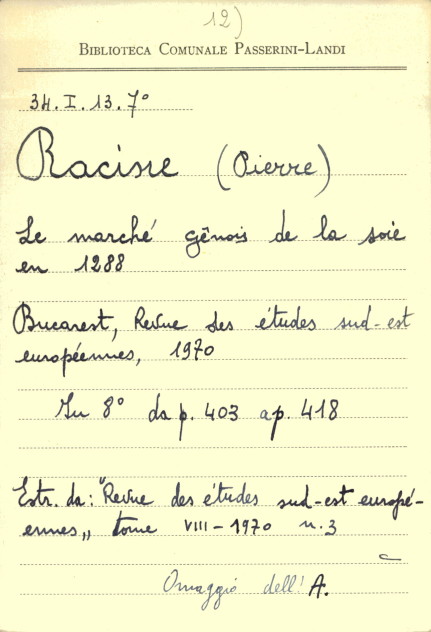 12)
BIBLIOTECA COMUNALE PASSERINI-LANDI
34. I. 13. 7°
Racine (Pierre)
Le marché gênois de la soie
en 1288
Bucarest, Revue des études sud-est
européennes, 1970
In 8° da p. 403 a p. 418
Estr. da: "Revue des études sud-est europé-
ennes„ tome VIII - 1970 n. 3
Omaggio dell' A.